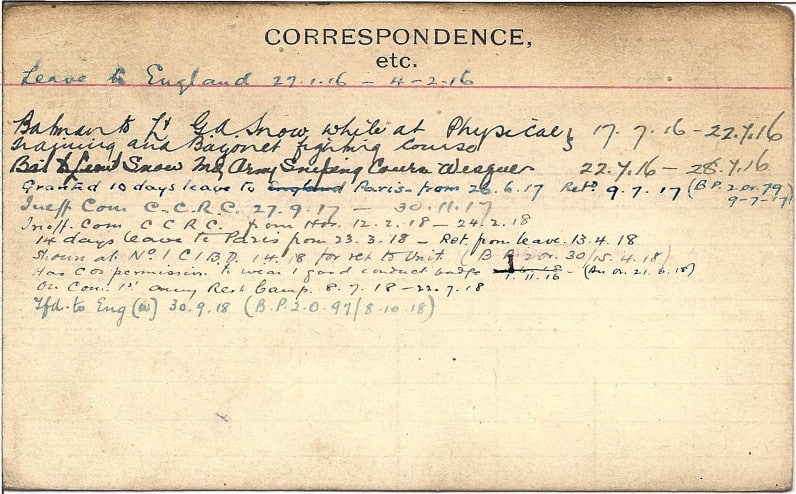 CORRESPONDENCE,
etc.
Leave to England 27.1.16 – 4-2-16
Batman to Lt G.A. Snow while at Physical } 17.7.16 – 22.7.16
training and Bayonet fighting course
Bat to Lieut Snow Army Sniping Course 22.7.16 – 28.7.16
Granted 10 days leave to England Paris from 26.6.17 Retd. 9.7.17 (B.P.2.or.79)
9-7-17
Ineff Com C.C.R.C. 27.9.17 – 30.11.17
Ineff. Com C C R C. from Hos. 12.2.18 – 24.2.18
14 days leave to Paris from 23.3.18 – Ret from leave 13.4.18
Shown at No 1 C I B D. 1.4.18 for ret to Unit. (B P 2 or. 30/15.4.18)
Has COs permission to wear 1 good conduct badge 1.11.16 – (An or. 21.6.18)
On Com. 1st army Rest Camp. 8.7.18 – 22.7.18
Tfd. to Eng (w) 30.9.18 (B.P.2.0.97/8.10.18)